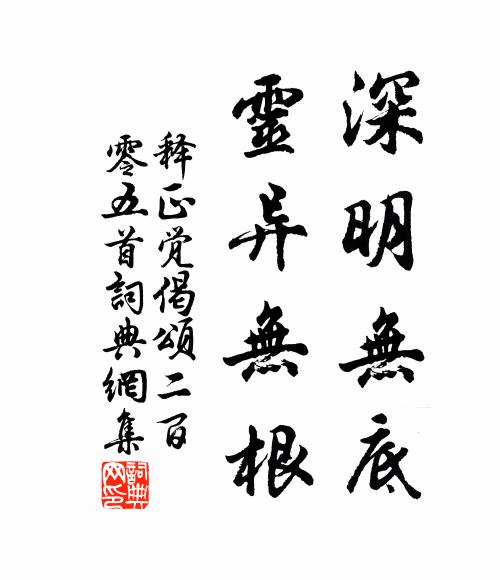 深明無底
靈异無根
释正觉偈頌二百
零五首詞典網集
詞典网印